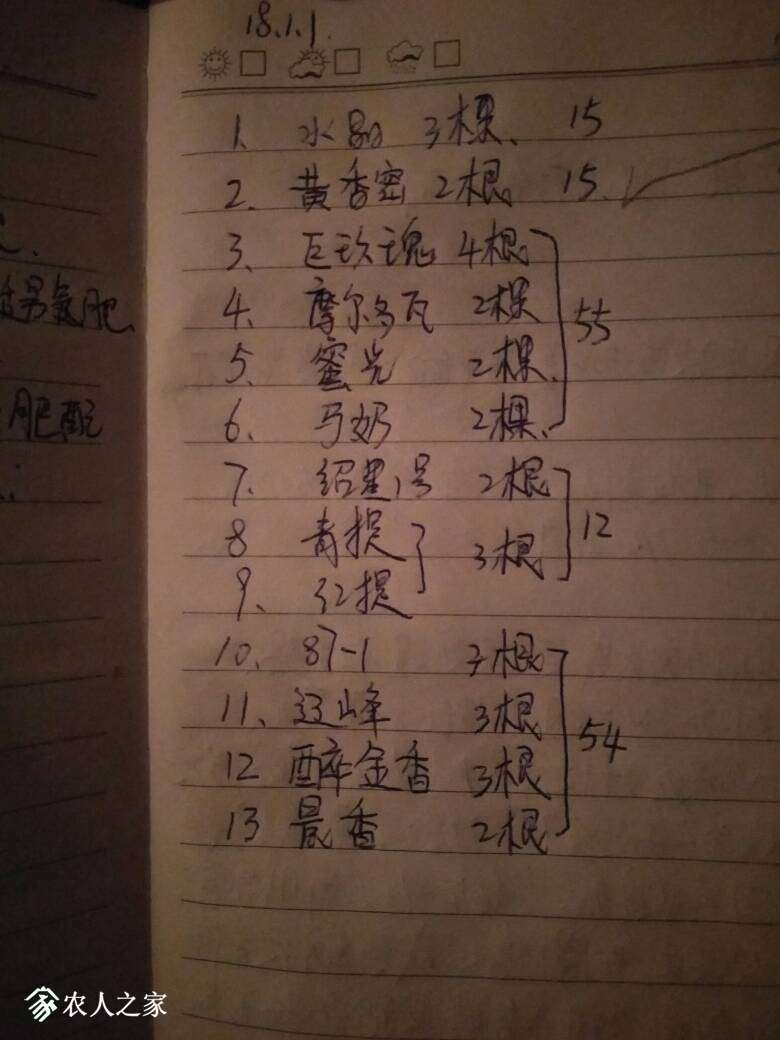 18.1.1
1. 水晶 3棵、 15
2、 黄香密 2根 15、
3、 巨玫瑰 4根
4、 摩尔多瓦 2棵 55
5、 蜜光 2棵、
6、 马奶 2棵、
7、 绍星1号 2根
8 青提 3根 12
9、 红提
10、 87-1 3根
11、 辽峰 3根
12 醉金香 3根 54
13 晨香 2根
肥
肥配
农人之家